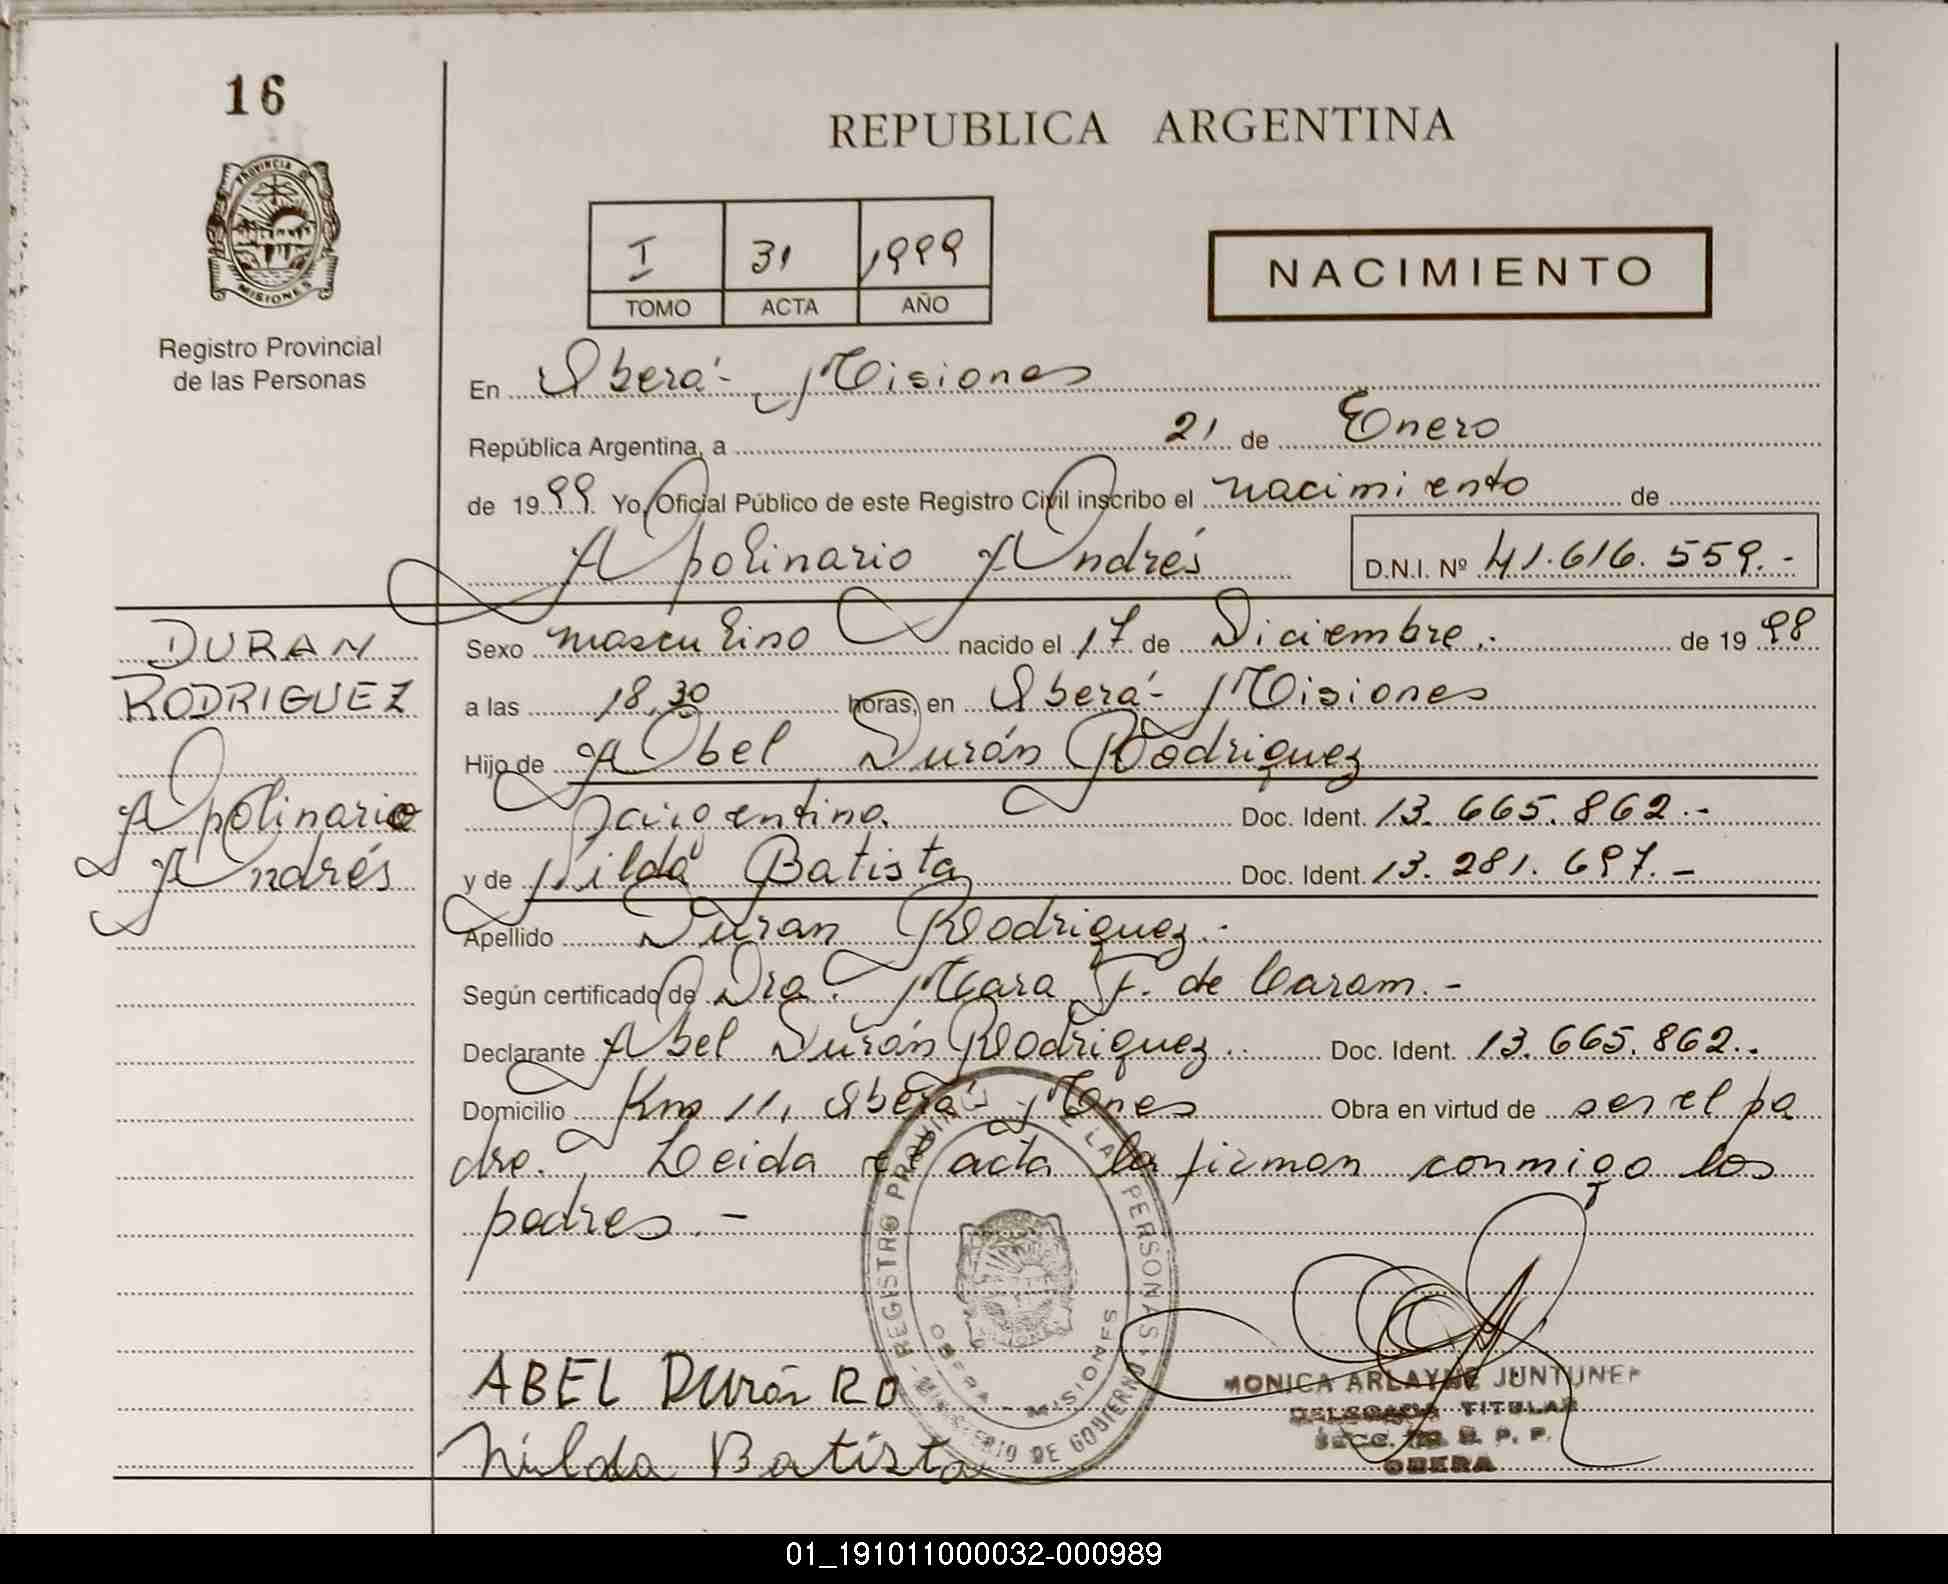 16
REPUBLICA ARGENTINA
PROVINCIA D
MISIONES
Registro Provincial
de las Personas
I 31 1999
TOMO ACTA AÑO
NACIMIENTO
En Oberá - Misiones
República Argentina, a 21 de Enero
de 1999 Yo, Oficial Público de este Registro Civil inscribo el nacimiento de
Apolinario Andrés D.N.I. Nº 41.616.559.-
DURAN
RODRIGUEZ
Apolinario
Andrés
Sexo masculino nacido el 17 de Diciembre.- de 1998
a las 18,30 horas, en Oberá - Misiones
Hijo de Abel Durán Rodriguez
argentino. Doc. Ident. 13.665.862.-
y de Nilda Batista Doc. Ident. 13.281.697.-
Apellido Duran Rodriguez.-
Según certificado de Dra. Mara F. de Caram.-
Declarante Abel Durán Rodriguez.- Doc. Ident. 13.665.862.-
Domicilio Km 11, Oberá - Mnes Obra en virtud de ser el pa
dre. Leida el acta la firman conmigo los
padres.-
REGISTRO PROVINCIAL DE LAS PERSONAS
MINISTERIO DE GOBIERNO
OBERA - MISIONES
ABEL Durán RO
Nilda Batista
MONICA ARLAYNE JUNTUNEN
DELEGADA TITULAR
SECC. R. P. P.
OBERA
01_191011000032-000989